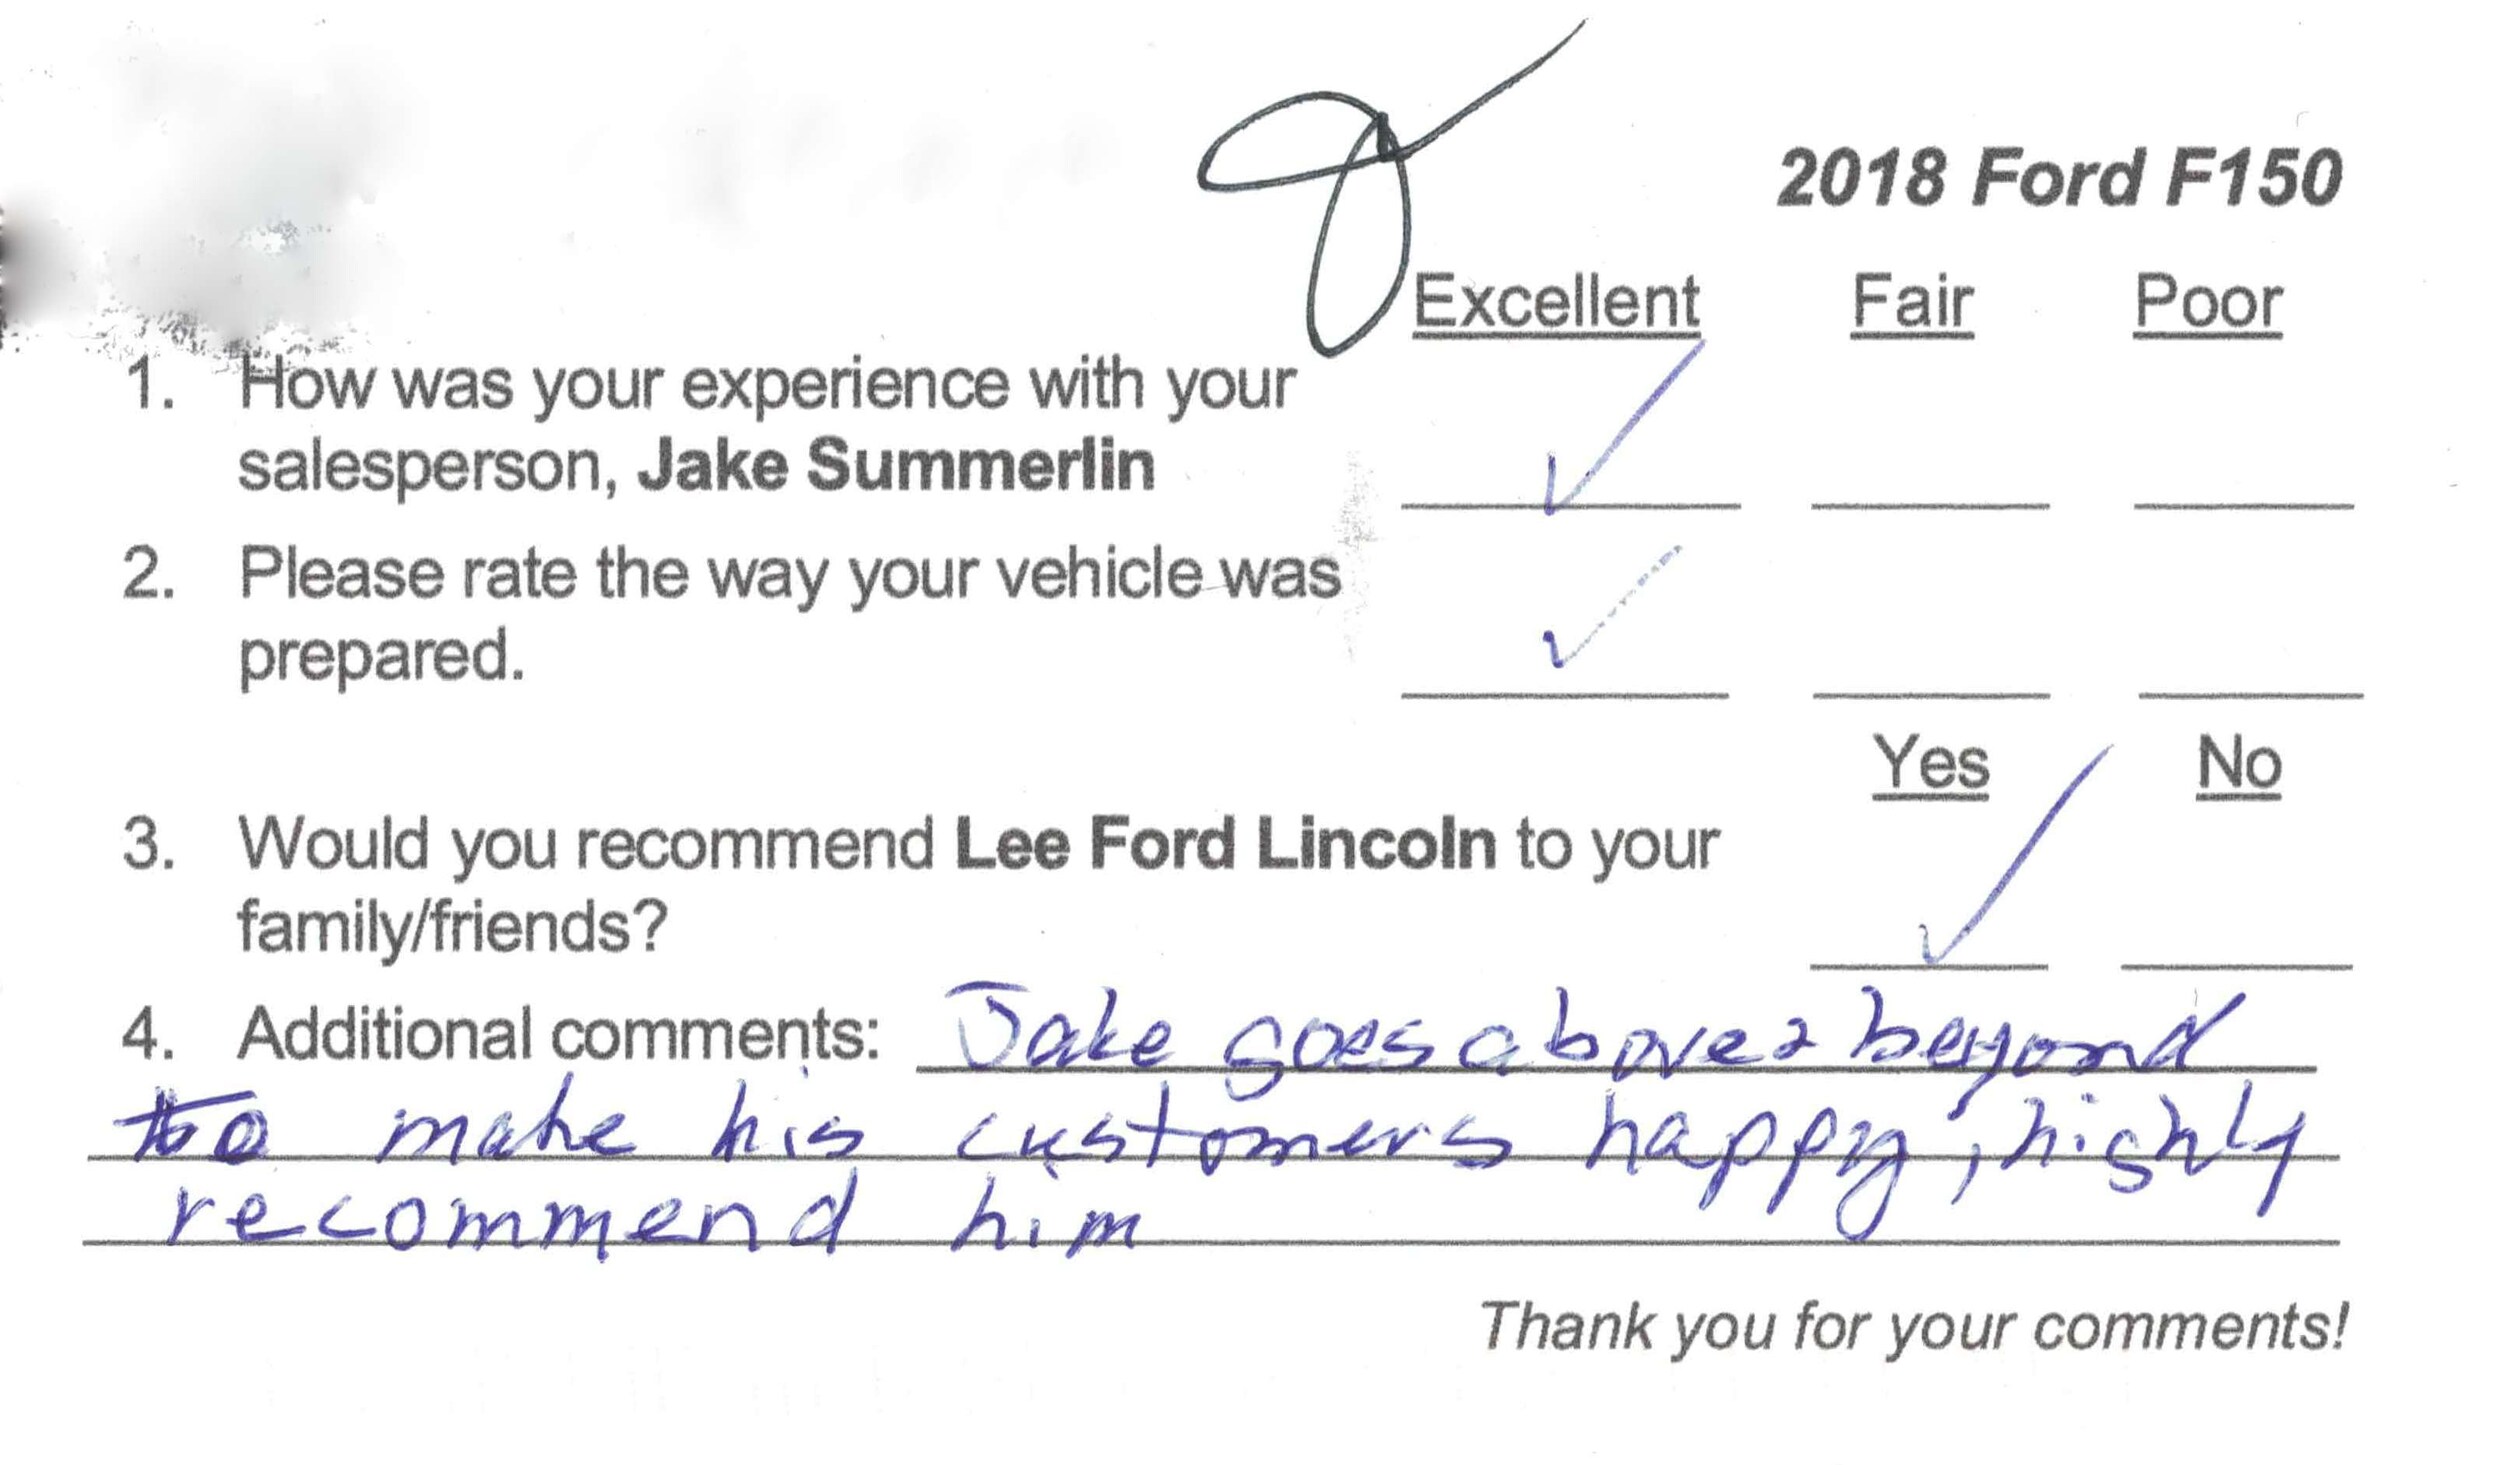 2018 Ford F150
Excellent Fair Poor
1. How was your experience with your
salesperson, Jake Summerlin
2. Please rate the way your vehicle was
prepared.
Yes No
3. Would you recommend Lee Ford Lincoln to your
family/friends?
4. Additional comments: Jake goes above & beyond
to make his customers happy, highly
recommend him
Thank you for your comments!